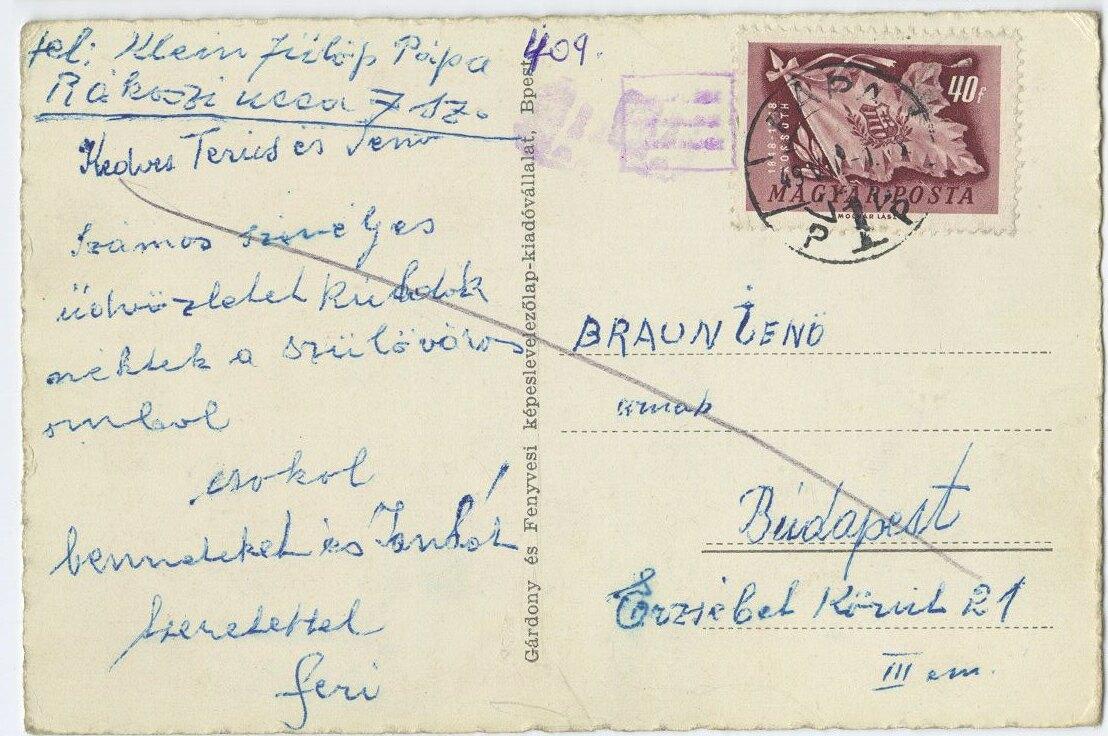 fel: Klein Fülöp Pápa
Rákoszi ucca 7 sz.
Kedves Terus és Jenő
Számos szivéljes
üdvözletet küldök
néktek a szülőváros
ombol
csokol
benneteket és Jankót
Szeretettel
feri
Gárdony és Fenyvesi képeslevelezőlap-kiadóvállalat, Bpest
409.
40f
1848-1948
KOSSUTH
MAGYAR POSTA
PÁPA
BRAUN JENŐ
urnak
Budapest
Erzsébet Körut 21
III em.